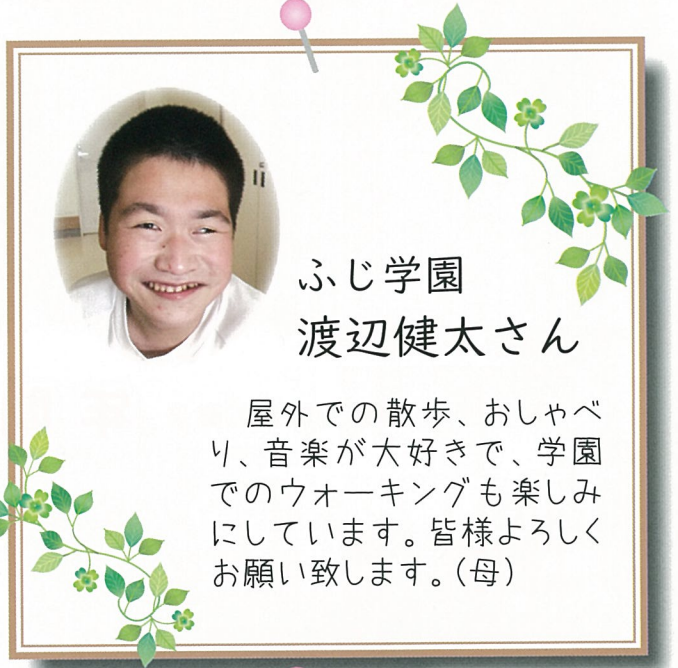 ふじ学園
渡辺健太さん
屋外での散歩、おしゃべ
り、音楽が大好きで、学園
でのウォーキングも楽しみ
にしています。皆様よろしく
お願い致します。（母）